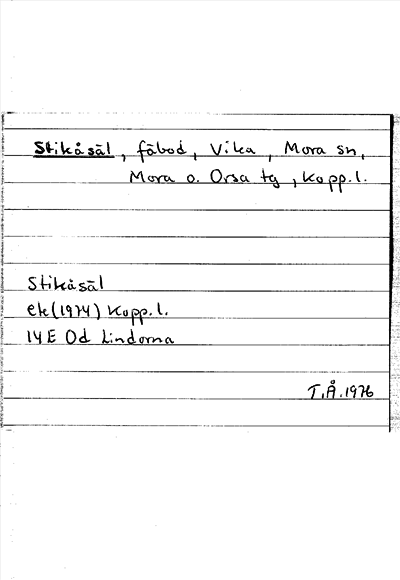 Stikåsäl, fäbod, Vika, Mora sn,
Mora o. Orsa tg, Kopp.l.
Stikåsäl
ek(1974) Kopp.l.
14E Od Lindorna
T.Å.1976